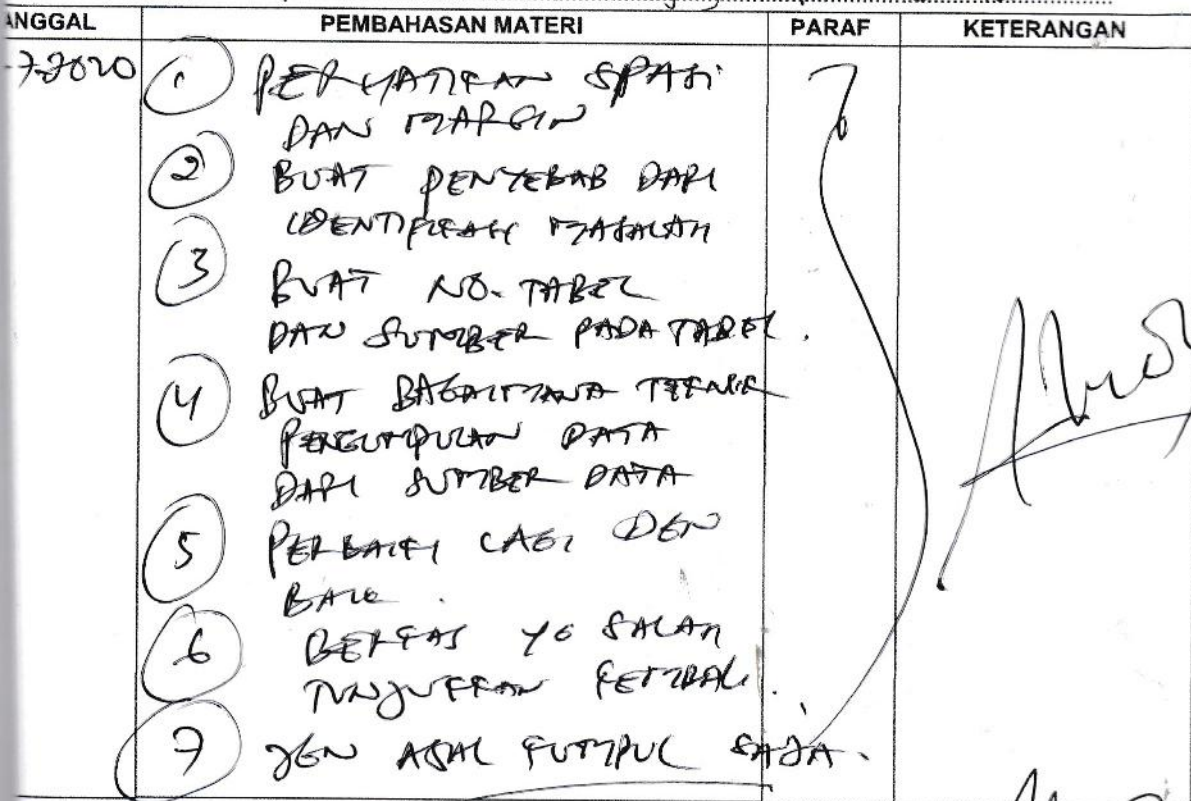 ANGGAL PEMBAHASAN MATERI PARAF KETERANGAN
-7-2020 1 PERHATIKAN SPASI
DAN MARGIN
2 BUAT PENYEBAB DARI
IDENTIFIKASI MASALAH
3 BUAT NO. TABEL
DAN SUMBER PADA TABEL.
4 BUAT BAGAIMANA TEKNIK
PENGUMPULAN DATA
DARI SUMBER DATA
5 PERBAIKI LAGI DEN
BAIK.
6 BERKAS YG SALAH
TUNJUKKAN KEMBALI.
7 JGN ASAL KUMPUL SAJA.